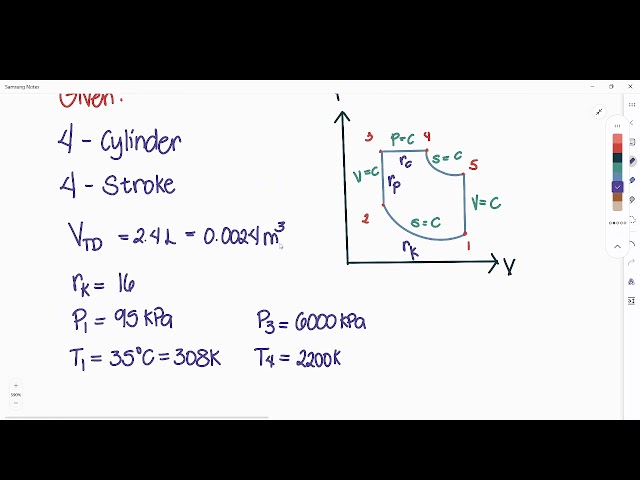 Samsung Notes
Given:
4 - Cylinder
4 - Stroke
V_TD = 2.4L = 0.0024 m³
r_k = 16
P₁ = 95 kPa
P₃ = 6000 kPa
T₁ = 35°C = 308K
T₄ = 2200K
3 P=C 4
r_c S=C
5
V=C r_p
V=C
2
S=C
1
r_k
V
590%